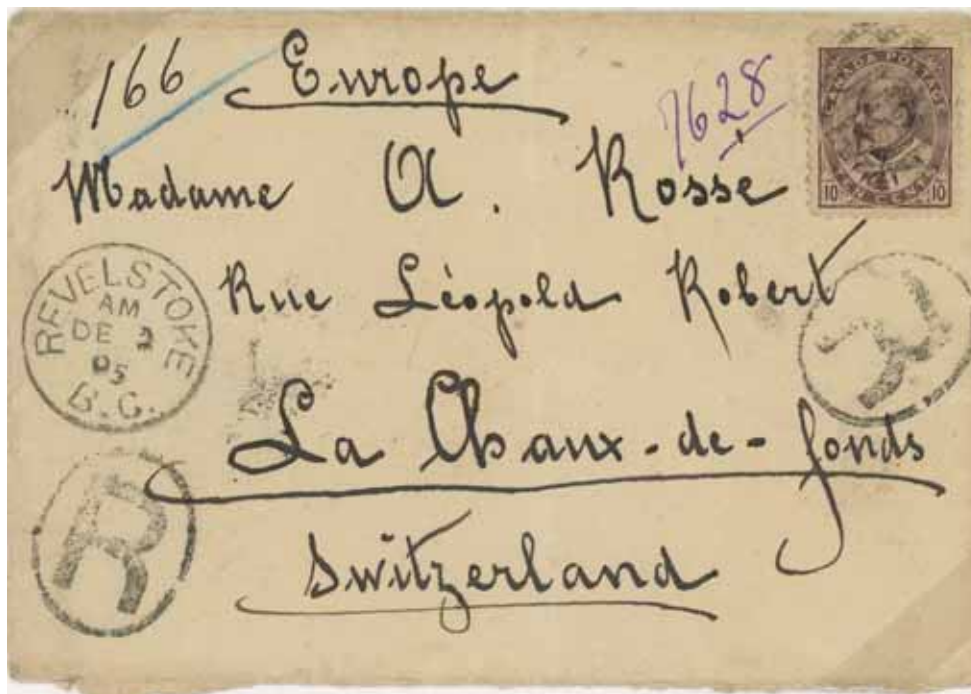 166 Europe
7628
CANADA POSTAGE
10 10
Madame A. Rosse
Rue Léopold Robert
REVELSTOKE
AM
DE 2
05
B.C.
R
La Chaux-de-fonds
R
Switzerland